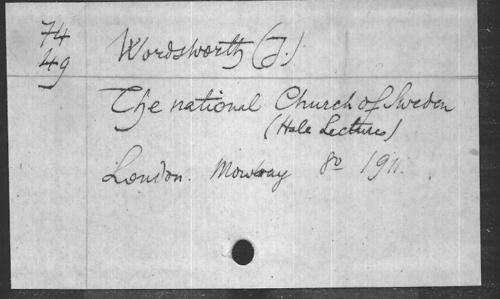 74
49
Wordsworth (J.)
The national Church of Sweden
(Hale Lectures)
London. Mowbray 8o 1911.